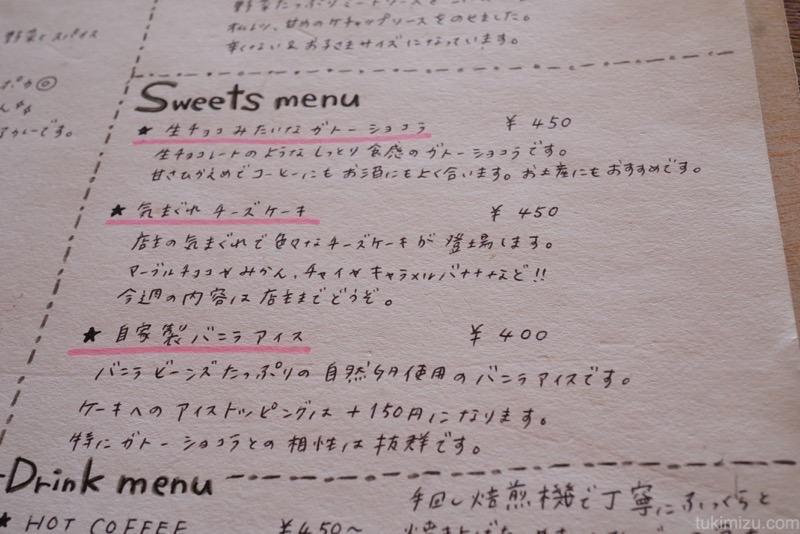 野菜とスパイス
カレーです。
甘めのケチャップソースをのせました。
辛くない&お子さまサイズになっています。
Sweets menu
★ 生チョコみたいなガトーショコラ ¥450
生チョコレートのようなしっとり食感のガトーショコラです。
甘さひかえめでコーヒーにもお酒にもよく合います。お土産にもおすすめです。
★ 気まぐれチーズケーキ ¥450
店主の気まぐれで色々なチーズケーキが登場します。
マーブルチョコやみかん、チャイやキャラメルバナナなど!!
今週の内容は店主までどうぞ。
★ 自家製バニラアイス ¥400
バニラビーンズたっぷりの自然派使用のバニラアイスです。
ケーキへのアイストッピングは+150円になります。
特にガトーショコラとの相性は抜群です。
Drink menu
★ HOT COFFEE ¥450〜
手回し焙煎機で丁寧にふっくらと
tukimizu.com